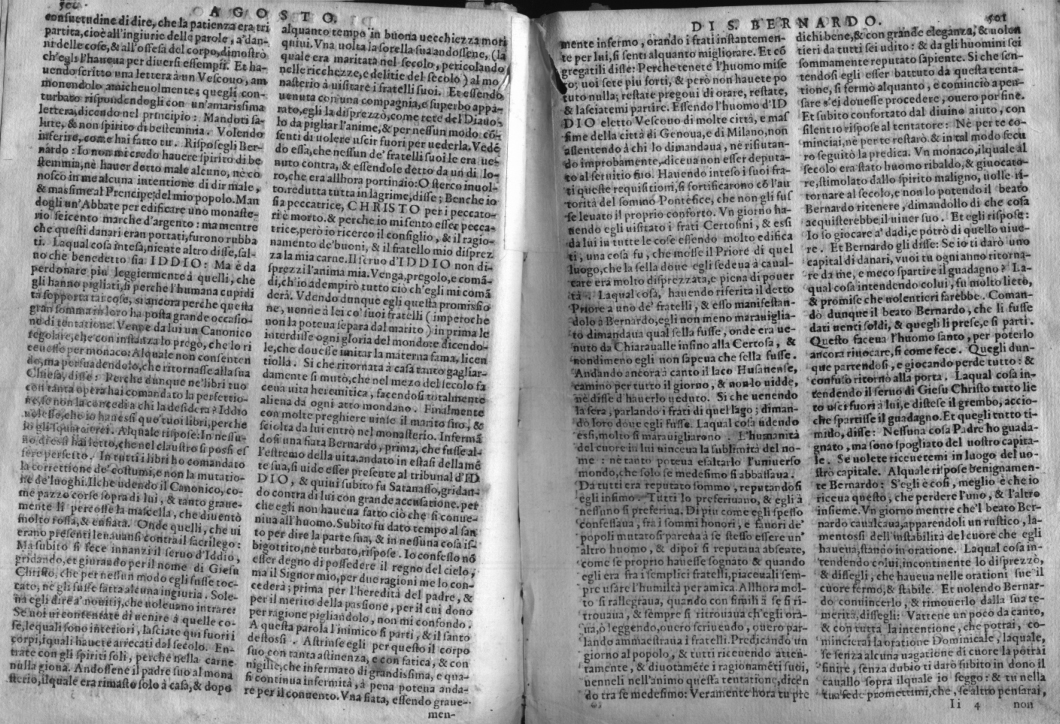 AGOSTO.
consuetudine di dire, che la patienza era tri
partita, cioè all'ingiurie delle parole, a'dan-
ni delle cose, & all'offesa del corpo, dimostrò
ch'egli l'haueua per diuersi essempi. Et ha-
uendo scritto una lettera à un Vescouo, am
monendolo amicheuolmente, quegli con-
turbato rispondendogli con un'amarissima
lettera, dicendo nel principio: Mandoti sa-
lute, & non spirito di bestemmia. Volendo
inferire, come hai fatto tu. Risposegli Ber-
nardo: Io non mi credo hauere spirito di be
stemmia, nè hauer detto male alcuno, nè co
nosco in me alcuna intentione di dir male,
& massime al Prencipe, del mio popolo. Man
dogli un'Abbate per edificare uno monaste-
rio seicento marche d'argento: ma mentre
che questi danari eran portati, furono rubba
ti. Laqual cosa intesa, niente altro disse, sal-
uo che benedetto sia IDDIO: Ma è da
perdonare piu leggiermente à quelli, che
gli hanno pigliati, sì perche l'humana cupidi
tà sopporta tai cose, sì ancora perche questa
gran somma in loro ha posta grande occasio-
ne di tentatione. Venne da lui un Canonico
regolare, che con instanza lo pregò, che lo ri
ceuesse per monaco: Alquale non consenten
do, ma persuadendolo, che ritornasse alla sua
Chiesa, disse: Perche dunque ne'libri tuo
con tanta opera hai comandato la perfettio-
ne, se non la concedi a chi la desidera? Iddio
uolesse, che io hauessi que tuoi libri, perche
io gli squarcerei. Alquale rispose: In nessu-
no, di essi hai letto, che nel claustro si possi es
sere perfetto. In tutti i libri ho comandato
la correttione de'costumi, e non la mutatio-
ne de'luoghi. Ilche udendo il Canonico, co-
me pazzo corse sopra di lui, & tanto graue-
mente li percosse la mascella, che diuentò
molto rossa, & enfiata. Onde quelli, che ui
erano presenti leuauansi contra il sacrilego:
Ma subito si fece innanzi il seruo d'Iddio,
gridando, et giurando per il nome di Giesu
Christo, che per nessun modo egli fusse toc-
cato, nè gli fusse fatta alcuna ingiuria. Sole-
ua egli dire a' nouitij, che uoleuano intrare:
Se uoi ui contentate di uenire à quelle co-
se, lequali sono interiori, lasciate qui fuori i
corpi, iquali hauete arrecati dal secolo. En-
trate con gli spiriti soli, perche nella carne
nulla gioua. Andossene il padre suo al mona
sterio, ilquale era rimasto solo à casa, & dopo
alquanto tempo in buona uecchiezza morì
quiui. Vna uolta la sorella sua andossene, (la
quale era maritata nel secolo, pericolando
nelle ricchezze, e delitie del secolo) al mo
nasterio à uisitare i fratelli suoi. Et essendo
uenuta con una compagnia, e superbo appa-
rato, egli la disprezzò, come rete del Diauo-
lo da pigliar l'anime, & per nessun modo cō
sentì di uolere uscir fuori per uederla. Vedē
do essa, che nessun de' fratelli suoi le era ue-
nuto contra, & essendole detto da un di lo-
ro, che era allhora portinaio: O sterco inuol-
to, redutta tutta in lagrime, disse; Benche io
sia peccatrice, CHRISTO per i peccato-
ri è morto. & perche io mi sento esser pecca-
trice, però io ricerco il consiglio, & il ragio-
namento de'buoni, & il fratello mio disprez
za la mia carne. Il seruo d'IDDIO non di-
sprezzi l'anima mia. Venga, pregolo, e comā-
di, ch'io adempirò tutto ciò ch'egli mi comā
derà. Vdendo dunque egli questa promissio
ne, uenne à lei co' suoi fratelli (imperoche
non la poteua separa dal marito) in prima le
interdisse ogni gloria del mondo: e dicendo-
le, che douesse imitar la materna fama, licen
tiolla. Si che ritornata à casa tanto gagliar-
damente si mutò, che nel mezo del secolo fa
ceua uita heremitica, facendosi totalmente
aliena da ogni atto mondano. Finalmente
con molte preghiere uinse il marito suo, &
sciolta da lui entrò nel monasterio. Infermā
dosi una fiata Bernardo, prima, che fusse al-
l'estremo della uita, andato in estasi della mē
te sua, si uide esser presente al tribunal d'ID
DIO, & quiui subito fu Satanasso, gridan-
do contra di lui con grande accusatione. per
che egli non haueua fatto ciò che si conue-
niua all'huomo. Subito fu dato tempo al san
to per dire la parte sua, & in nessuna cosa is-
bigottito, nè turbato, rispose. Io confesso nō
esser degno di possedere il regno del cielo,
ma il Signor mio, per due ragioni me lo con-
cederà; prima per l'heredità del padre, &
per il merito della passione, per il cui dono
per ragione pigliandolo, non mi confondo.
A questa parola l'inimico si partì, & il santo
destossi. Astrinse egli per questo il corpo
suo con tanta astinenza, e con fatica, & con
uigilie, che infermato di grandissima, e qua-
si continua infermità, à pena poteua anda-
re per il conuento. Vna fiata, essendo graue-
men-
DI S. BERNARDO. 501
mente infermo, orando i frati instantemen-
te per lui, si sentì alquanto migliorare. Et cō
gregatili disse: Perche tenete l'huomo mise
ro; uoi sete piu forti, & però non hauete po
tuto nulla; restate pregoui di orare, restate,
& lasciatemi partire. Essendo l'huomo d'ID
DIO eletto Vescouo di molte città, e mas
sime della città di Genoua, e di Milano, non
assentendo à chi lo dimandaua, nè rifiutan-
do improbamente, diceua non esser deputa-
to al seruitio suo. Hauendo inteso i suoi fra-
ti queste requisitioni, si fortificarono cō l'au
torità del sommo Pontefice, che non gli fus
se leuato il proprio conforto. Vn giorno ha-
uendo egli uisitato i frati Certosini, & essi
da lui in tutte le cose essendo molto edifica
ti, una cosa fu, che mosse il Priore di quel
luogo, che la sella doue egli sedeua à caual-
care era molto disprezzata, e piena di pouer
tà. Laqual cosa, hauendo riferita il detto
Priore a uno de' fratelli, & esso manifestan-
dolo à Bernardo, egli non meno marauiglia-
to dimandaua qual sella fusse, onde era ue-
nuto da Chiaraualle insino alla Certosa, &
nondimeno egli non sapeua che sella fusse.
Andando ancora à canto il laco Husanense,
caminò per tutto il giorno, & non lo uidde,
nè disse d'hauerlo ueduto. Si che uenendo
la sera, parlando i frati di quel lago; diman-
dò loro doue egli fusse. Laqual cosa udendo
essi, molto si marauigliarono. L'humanità
del cuore in lui uinceua la sublimità del no-
me: nè tanto poteua esaltarlo l'uniuerso
mondo, che solo se medesimo si abbassaua.
Da tutti era reputato sommo, reputandosi
egli infimo. Tutti lo preferiuano, & egli à
nessuno si preferiua. Di piu come egli spesso
confessaua, fra i sommi honori, e fauori de'
popoli mutatosi pareua à se stesso essere un'
altro huomo, & dipoi si reputaua absente,
come se proprio hauesse sognato & quando
egli era fra i semplici fratelli, piaceuali sem-
pre usare l'humiltà per amica. Allhora mol-
to si rallegraua, quando con simili à se si ri-
trouaua, & sempre si ritrouaua ch'egli ora-
ua, ò leggendo, ouero scriuendo, ouero par-
lando ammaestraua i fratelli. Predicando un
giorno al popolo, & tutti riceuendo atten-
tamente, & diuotamēte i ragionamēti suoi,
uenneli nell'animo questa tentatione, dicen
do tra se medesimo: Veramente hora tu pre
dichi bene, & con grande eleganza, & uolon
tieri da tutti sei udito: & da gli huomini sei
sommamente reputato sapiente. Si che sen-
tendosi egli esser battuto da questa tenta-
tione, si fermò alquanto, e cominciò a pen-
sare s'ei douesse procedere, ouero por fine.
Et subito confortato dal diuino aiuto, con
silentio rispose al tentatore: Nè per te co-
minciai, nè per te restarò. & in tal modo secu
ro seguitò la predica. Vn monaco, ilquale al
secolo era stato huomo ribaldo, & giuocato-
re, stimolato dallo spirito maligno, uolse ri-
tornare al secolo, e non lo potendo il beato
Bernardo ritenere, dimandollo di che cosa
acquisterebbe il uiuer suo. Et egli rispose:
Io so giocare a' dadi, e potrò di quello uiue-
re. Et Bernardo gli disse: Se io ti darò uno
capital di danari, vuoi tu ogni anno ritorna-
re da me, e meco spartire il guadagno? La-
qual cosa intendendo colui, fu molto lieto,
& promise che uolentieri farebbe. Coman-
dò dunque il beato Bernardo, che li fusse
dati uenti soldi, & quegli li prese, e si partì.
Questo faceua l'huomo santo, per poterlo
ancora riuocare, si come fece. Quegli dun-
que partendosi, e giocando perde tutto: &
confuso ritornò alla porta. Laqual cosa in-
tendendo il seruo di Giesu Christo tutto lie
to uscì fuori à lui, e distese il grembo, accio-
che spartisse il guadagno. Et quegli tutto ti-
mido, disse: Nessuna cosa Padre ho guada-
gnato, ma sono spogliato del uostro capita-
le. Se uolete riceuetemi in luogo del uo-
stro capitale. Alquale rispose benignamen-
te Bernardo: S'egli è così, meglio è che io
riceua questo, che perdere l'uno, & l'altro
insieme. Vn giorno mentre che'l beato Ber-
nardo caualcaua, apparendoli un rustico, la-
mentossi dell'instabilità del cuore che egli
haueua, stando in oratione. Laqual cosa in-
tendendo colui, incontinente lo disprezzò,
& dissegli, che haueua nelle orationi sue il
cuore fermo, & stabile. Et uolendo Bernar-
do conuincerlo, & rimouerlo dalla sua te-
merità, dissegli: Vattene un poco da canto,
& con tutta la intentione, che potrai, co-
mincerai la oratione Dominicale, laquale,
se senza alcuna uagatione di cuore la potrai
finire, senza dubio ti darò subito in dono il
cauallo sopra ilquale io seggo: & tu nella
tua fede promettimi, che, se altro pensarai,
Ii 4 non